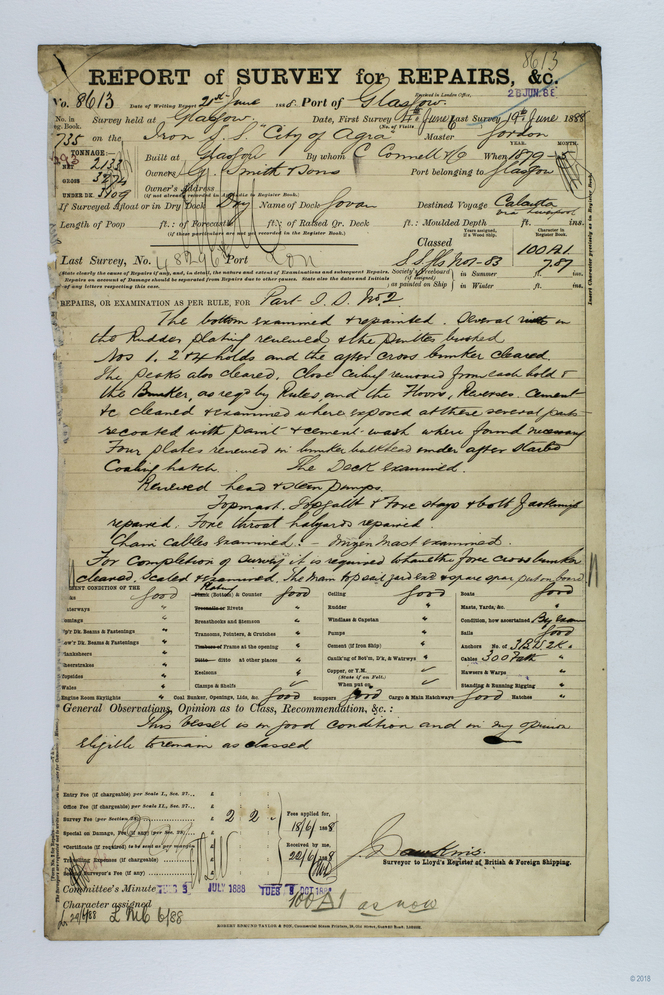 8613
REPORT of SURVEY for REPAIRS, &c.
Received in London Office, 26 JUN. 88
No. 8613 Date of Writing Report 21st June 1888. Port of Glasgow.
No. in Reg. Book. Survey held at Glasgow. Date, First Survey June Last Survey 19th June 1888
(No. of Visits 6
735 on the Iron S.S. "City of Agra" Master Gordon
TONNAGE:
NET 2133
GROSS 3274
UNDER DK. 3109
Built at Glasgow By whom C Connell & Co When 1879 - 5
YEAR. MONTH.
Owners G. Smith & Sons Port belonging to Glasgow
Owner's Address
(if not already recorded in Appendix to Register Book.)
If Surveyed Afloat or in Dry Dock Dry Name of Dock Govan Destined Voyage Calcutta via Liverpool
Length of Poop ft.: of Forecastle ft.: of Raised Qr. Deck ft.: Moulded Depth ft. ins.
(if these particulars are not yet recorded in the Register Book.)
Classed
Years assigned, if a Wood ship.
Character in Register Book.
100 A1
7.87
Last Survey, No. 48296 Port Lon S.S. No 1-83
Society's Freeboard (if assigned) as painted on Ship in Summer ft. ins.
in Winter ft. ins.
REPAIRS, OR EXAMINATION AS PER RULE, FOR Part S.S. No. 2
The bottom examined & repainted. Several rivets in
the Rudder plating renewed & the pintles bushed
Nos 1. 2 & 4 holds and the after cross bunker cleared.
The peaks also cleared. Close Ceiling removed from each hold &
the Bunker, as reqd by Rules, and the Floors, Reverses. Cement
&c cleaned & examined where exposed at these several parts
recoated with paint & cement wash where found necessary
Four plates renewed in bunker bulkhead under after started
Coaling hatch. The Deck examined.
Renewed head & steam pumps.
Topmast. Topgallt & Fore stays & bolt fastenings
repaired. Fore throat halyards repaired
Chain Cables examined. - Mizen mast examined.
For Completion of survey it is required to have the fore cross bunker
cleaned. Scaled & examined. The Main topsail yard and spare spar put on board
PRESENT CONDITION OF THE
good
Plank (Bottom) & Counter good
Ceiling good
Boats good
Waterways "
Treenails or Rivets "
Rudder "
Masts, Yards, &c. "
Breasthooks and Stemson "
Windlass & Capstan "
Condition, how ascertained By exam
Up'r Dk. Beams & Fastenings "
Transoms, Pointers, & Crutches "
Pumps "
Sails good
Low'r Dk. Beams & Fastenings "
Timbers or Frame at the opening "
Cement (if Iron Ship) "
Anchors No. of 3B.1S.2K.
Plansheers "
Ditto ditto at other places "
Caulk'ng of Bot'm, D'k, & Watrwys "
Cables 300 Fath "
Sheerstrakes "
Keelsons "
Copper, or Y.M.
(State if on Felt.)
Hawsers & Warps "
Topsides "
Clamps & Shelfs
When put on
Standing & Running Rigging "
Wales "
Engine Room Skylights " Coal Bunker, Openings, Lids, &c. Good Scuppers Good Cargo & Main Hatchways Good Hatches "
General Observations, Opinion as to Class, Recommendation, &c.:
This vessel is in good condition and in my opinion
Eligible to remain as classed
Entry Fee (if chargeable) per Scale I., Sec. 27... £
Office Fee (if chargeable) per Scale II., Sec. 27... £
Survey Fee (per Section 28) £ 2 2
Special on Damage, Fee (if any) (per Sec. 28) £
*Certificate (if required) to be sent as per margin £
Travelling Expenses (if chargeable) £
Surveyor's Fee (if any) £
Fees applied for, 18/6/1888
Received by me, 22/6/1888
Surveyor to Lloyd's Register of British & Foreign Shipping.
Committee's Minute TUES 3 JULY 1888 TUES 9 OCT 1888
Character assigned 100 A1 as now
ROBERT EDMUND TAYLOR & SON, Commercial Steam Printers, 19, Old Street, Goswell Road, LONDON.
© 2018